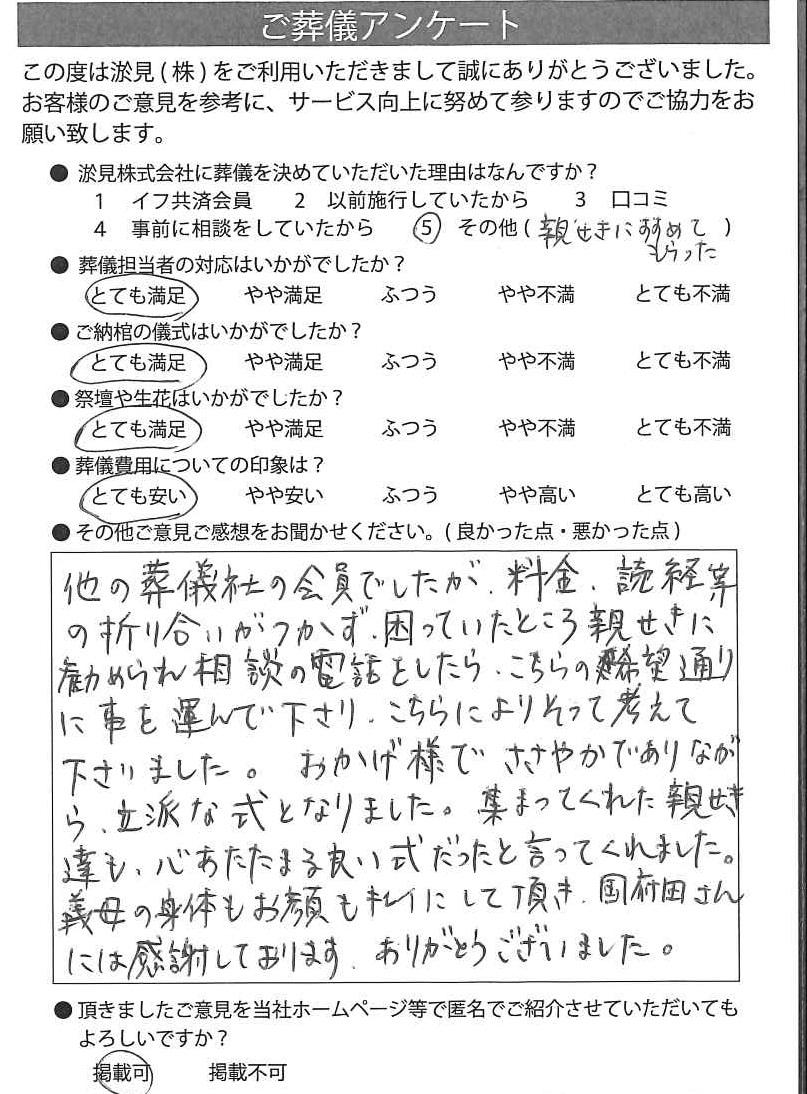 ご葬儀アンケート
この度は淤見(株)をご利用いただきまして誠にありがとうございました。
お客様のご意見を参考に、サービス向上に努めて参りますのでご協力をお
願い致します。
● 淤見株式会社に葬儀を決めていただいた理由はなんですか?
1 イフ共済会員 2 以前施行していたから 3 口コミ
4 事前に相談をしていたから ⑤ その他(親せきにすすめて)
もらった
● 葬儀担当者の対応はいかがでしたか?
とても満足 やや満足 ふつう やや不満 とても不満
● ご納棺の儀式はいかがでしたか?
とても満足 やや満足 ふつう やや不満 とても不満
● 祭壇や生花はいかがでしたか?
とても満足 やや満足 ふつう やや不満 とても不満
● 葬儀費用についての印象は?
とても安い やや安い ふつう やや高い とても高い
● その他ご意見ご感想をお聞かせください。(良かった点・悪かった点)
他の葬儀社の会員でしたが、料金、読経等
の折り合いがつかず、困っていたところ親せきに
勧められ相談の電話をしたら、こちらの希望通り
に事を運んで下さり、こちらによりそって考えて
下さいました。おかげ様でささやかでありなが
ら、立派な式となりました。集まってくれた親せき
達も、心あたたまる良い式だったと言ってくれました。
義母の身体もお顔もキレイにして頂き、国府田さん
には感謝しております。ありがとうございました。
● 頂きましたご意見を当社ホームページ等で匿名でご紹介させていただいても
よろしいですか?
掲載可 掲載不可